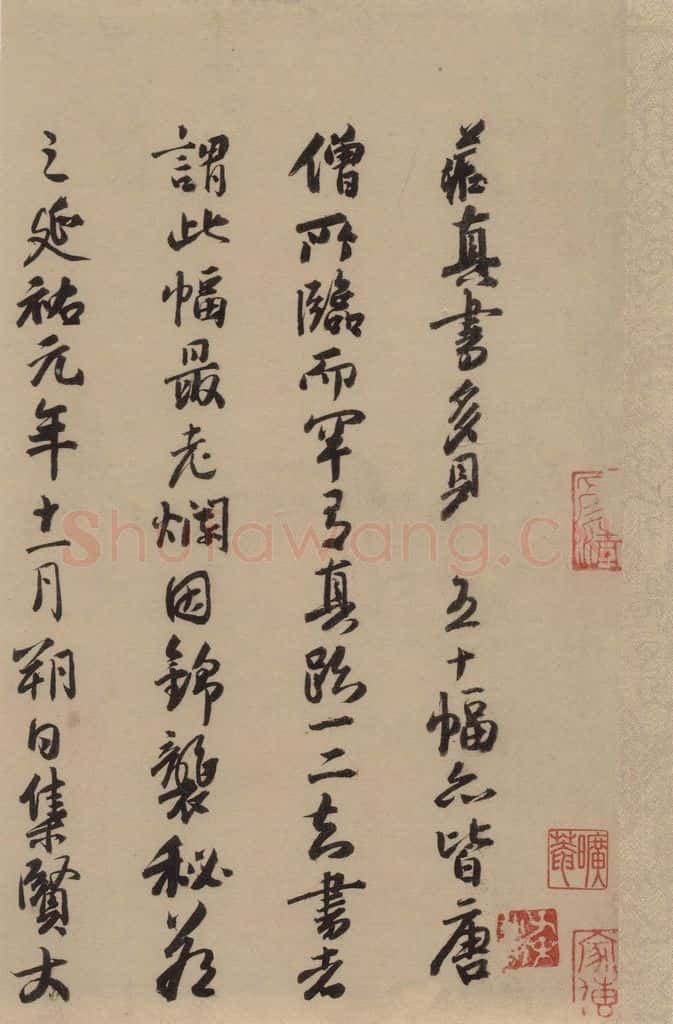 藏真書多見 五十幅亦皆唐
僧所臨而罕有真跡一二知書者
謂此幅最老爛因錦襲秘藏
之延祐元年十一月朔日集賢大
Shufawang.C